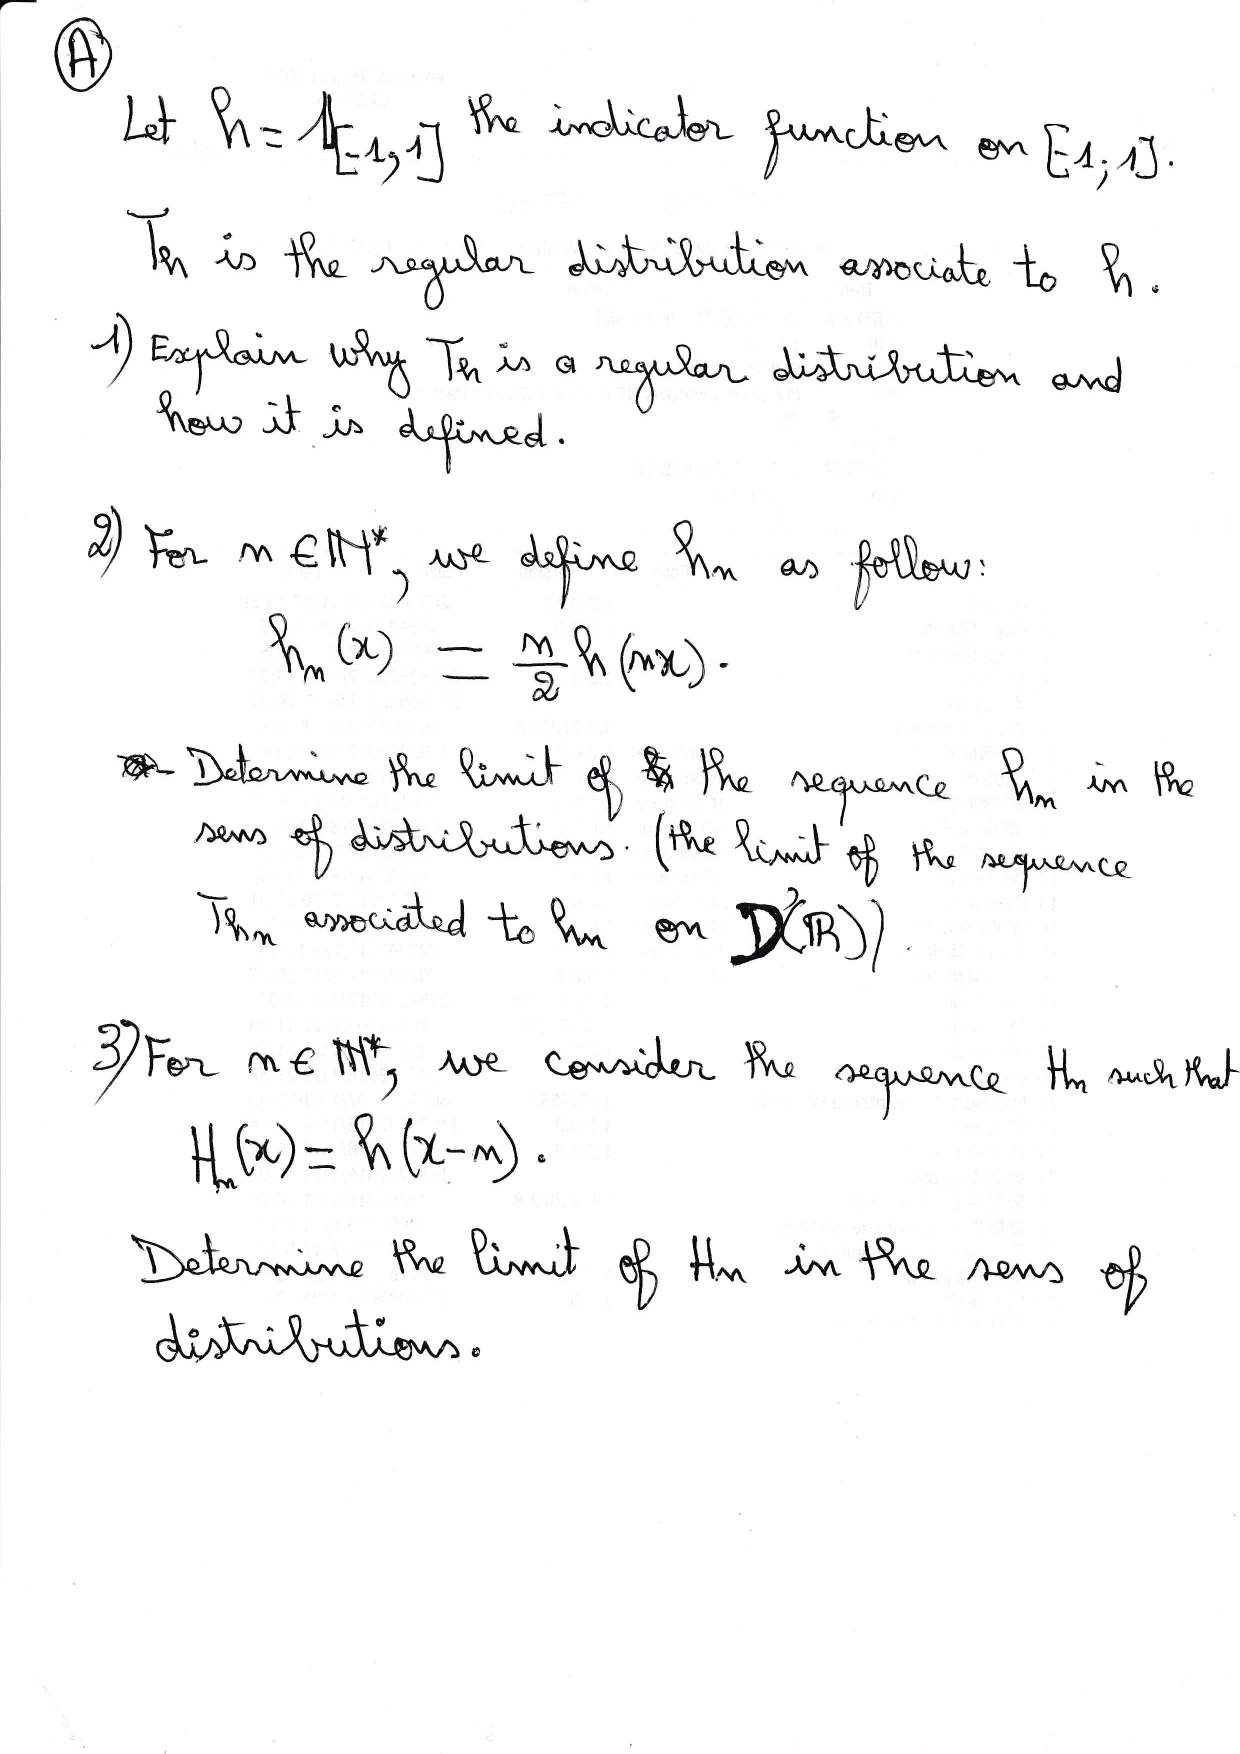 A
Let h = 𝟙[-1,1] the indicator function on [-1; 1].
Th is the regular distribution associate to h.
1) Explain why Th is a regular distribution and
how it is defined.
2) For n ∈ ℕ*, we define hn as follow:
hn(x) = n/2 h(nx).
- Determine the limit of the sequence hn in the
sens of distributions. (the limit of the sequence
Thn associated to hn on D'(ℝ))
3) For n ∈ ℕ*, we consider the sequence Hn such that
Hn(x) = h(x-n).
Determine the limit of Hn in the sens of
distributions.